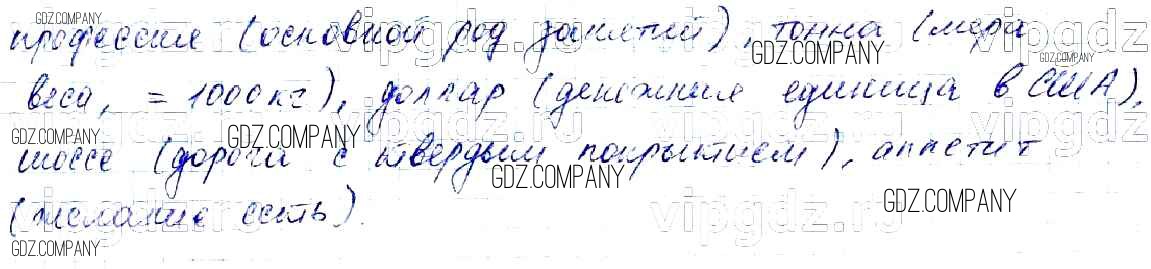 профессия (основной род занятий), тонна (мера
веса, = 1000 кг), доллар (денежная единица в США),
шоссе (дорога с твердым покрытием), аппетит
(желание есть).
GDZ.COMPANY
GDZ.COMPANY
GDZ.COMPANY
GDZ.COMPANY
GDZ.COMPANY
GDZ.COMPANY
GDZ.COMPANY
GDZ.COMPANY
vipgdz.ru
vipgdz.ru
vipgdz
vipgdz.ru
vipgdz.ru
vipgdz
vipgdz.ru
vipgdz.ru